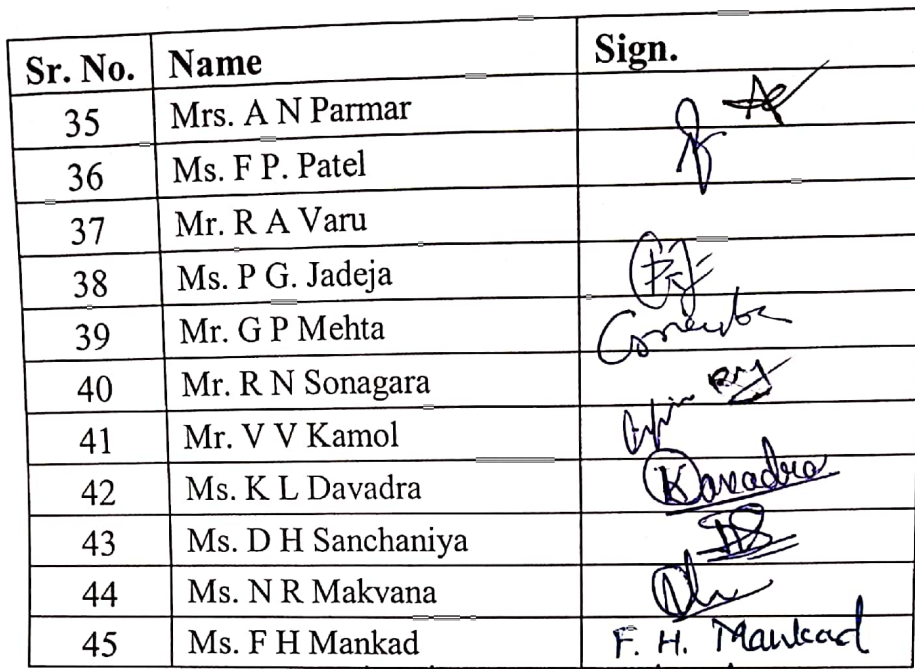 Sr. No. Name Sign.
35 Mrs. A N Parmar
36 Ms. F P. Patel
37 Mr. R A Varu
38 Ms. P G. Jadeja
39 Mr. G P Mehta
40 Mr. R N Sonagara
41 Mr. V V Kamol
42 Ms. K L Davadra Kavadra
43 Ms. D H Sanchaniya
44 Ms. N R Makvana
45 Ms. F H Mankad F. H. Mankad